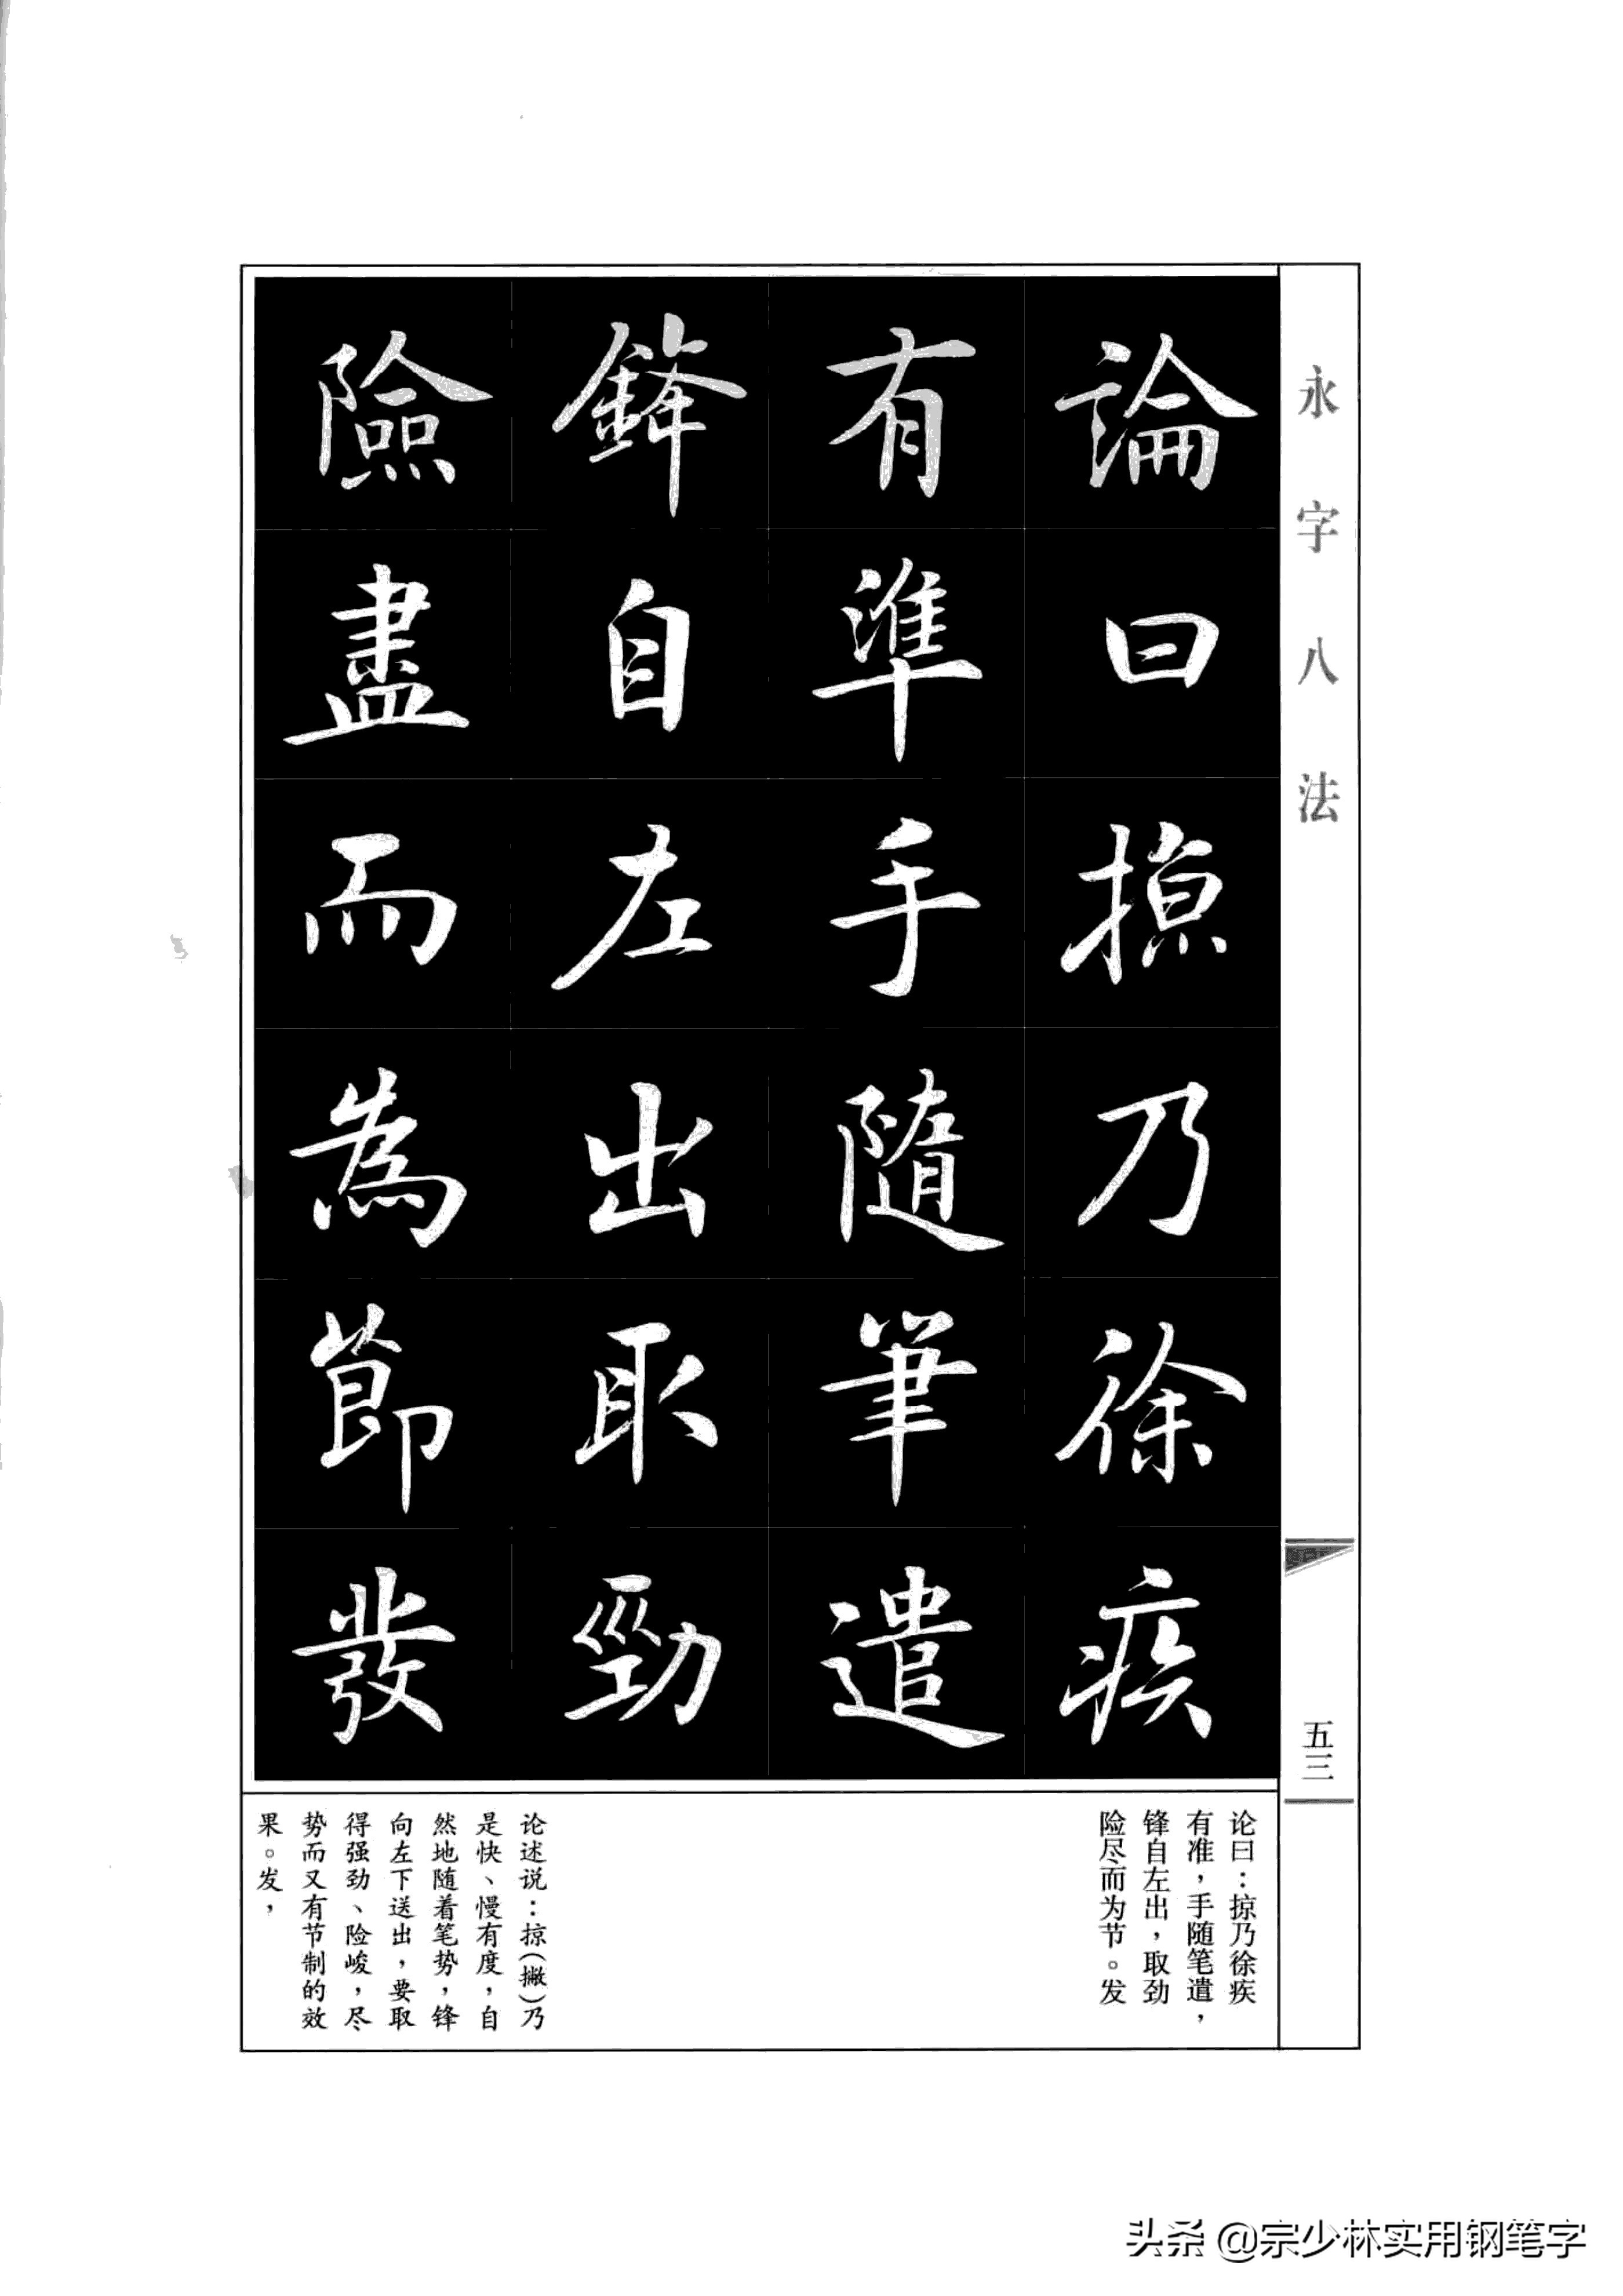 永字八法
五三
論曰掠乃徐疾
有準手隨筆遣
鋒自左出取勁
險盡而為節發
论曰：掠乃徐疾
有准，手随笔遣，
锋自左出，取劲
险尽而为节。发
论述说：掠（撇）乃
是快、慢有度，自
然地随着笔势，锋
向左下送出，要取
得强劲、险峻，尽
势而又有节制的效
果。发，
头条 @宗少林实用钢笔字